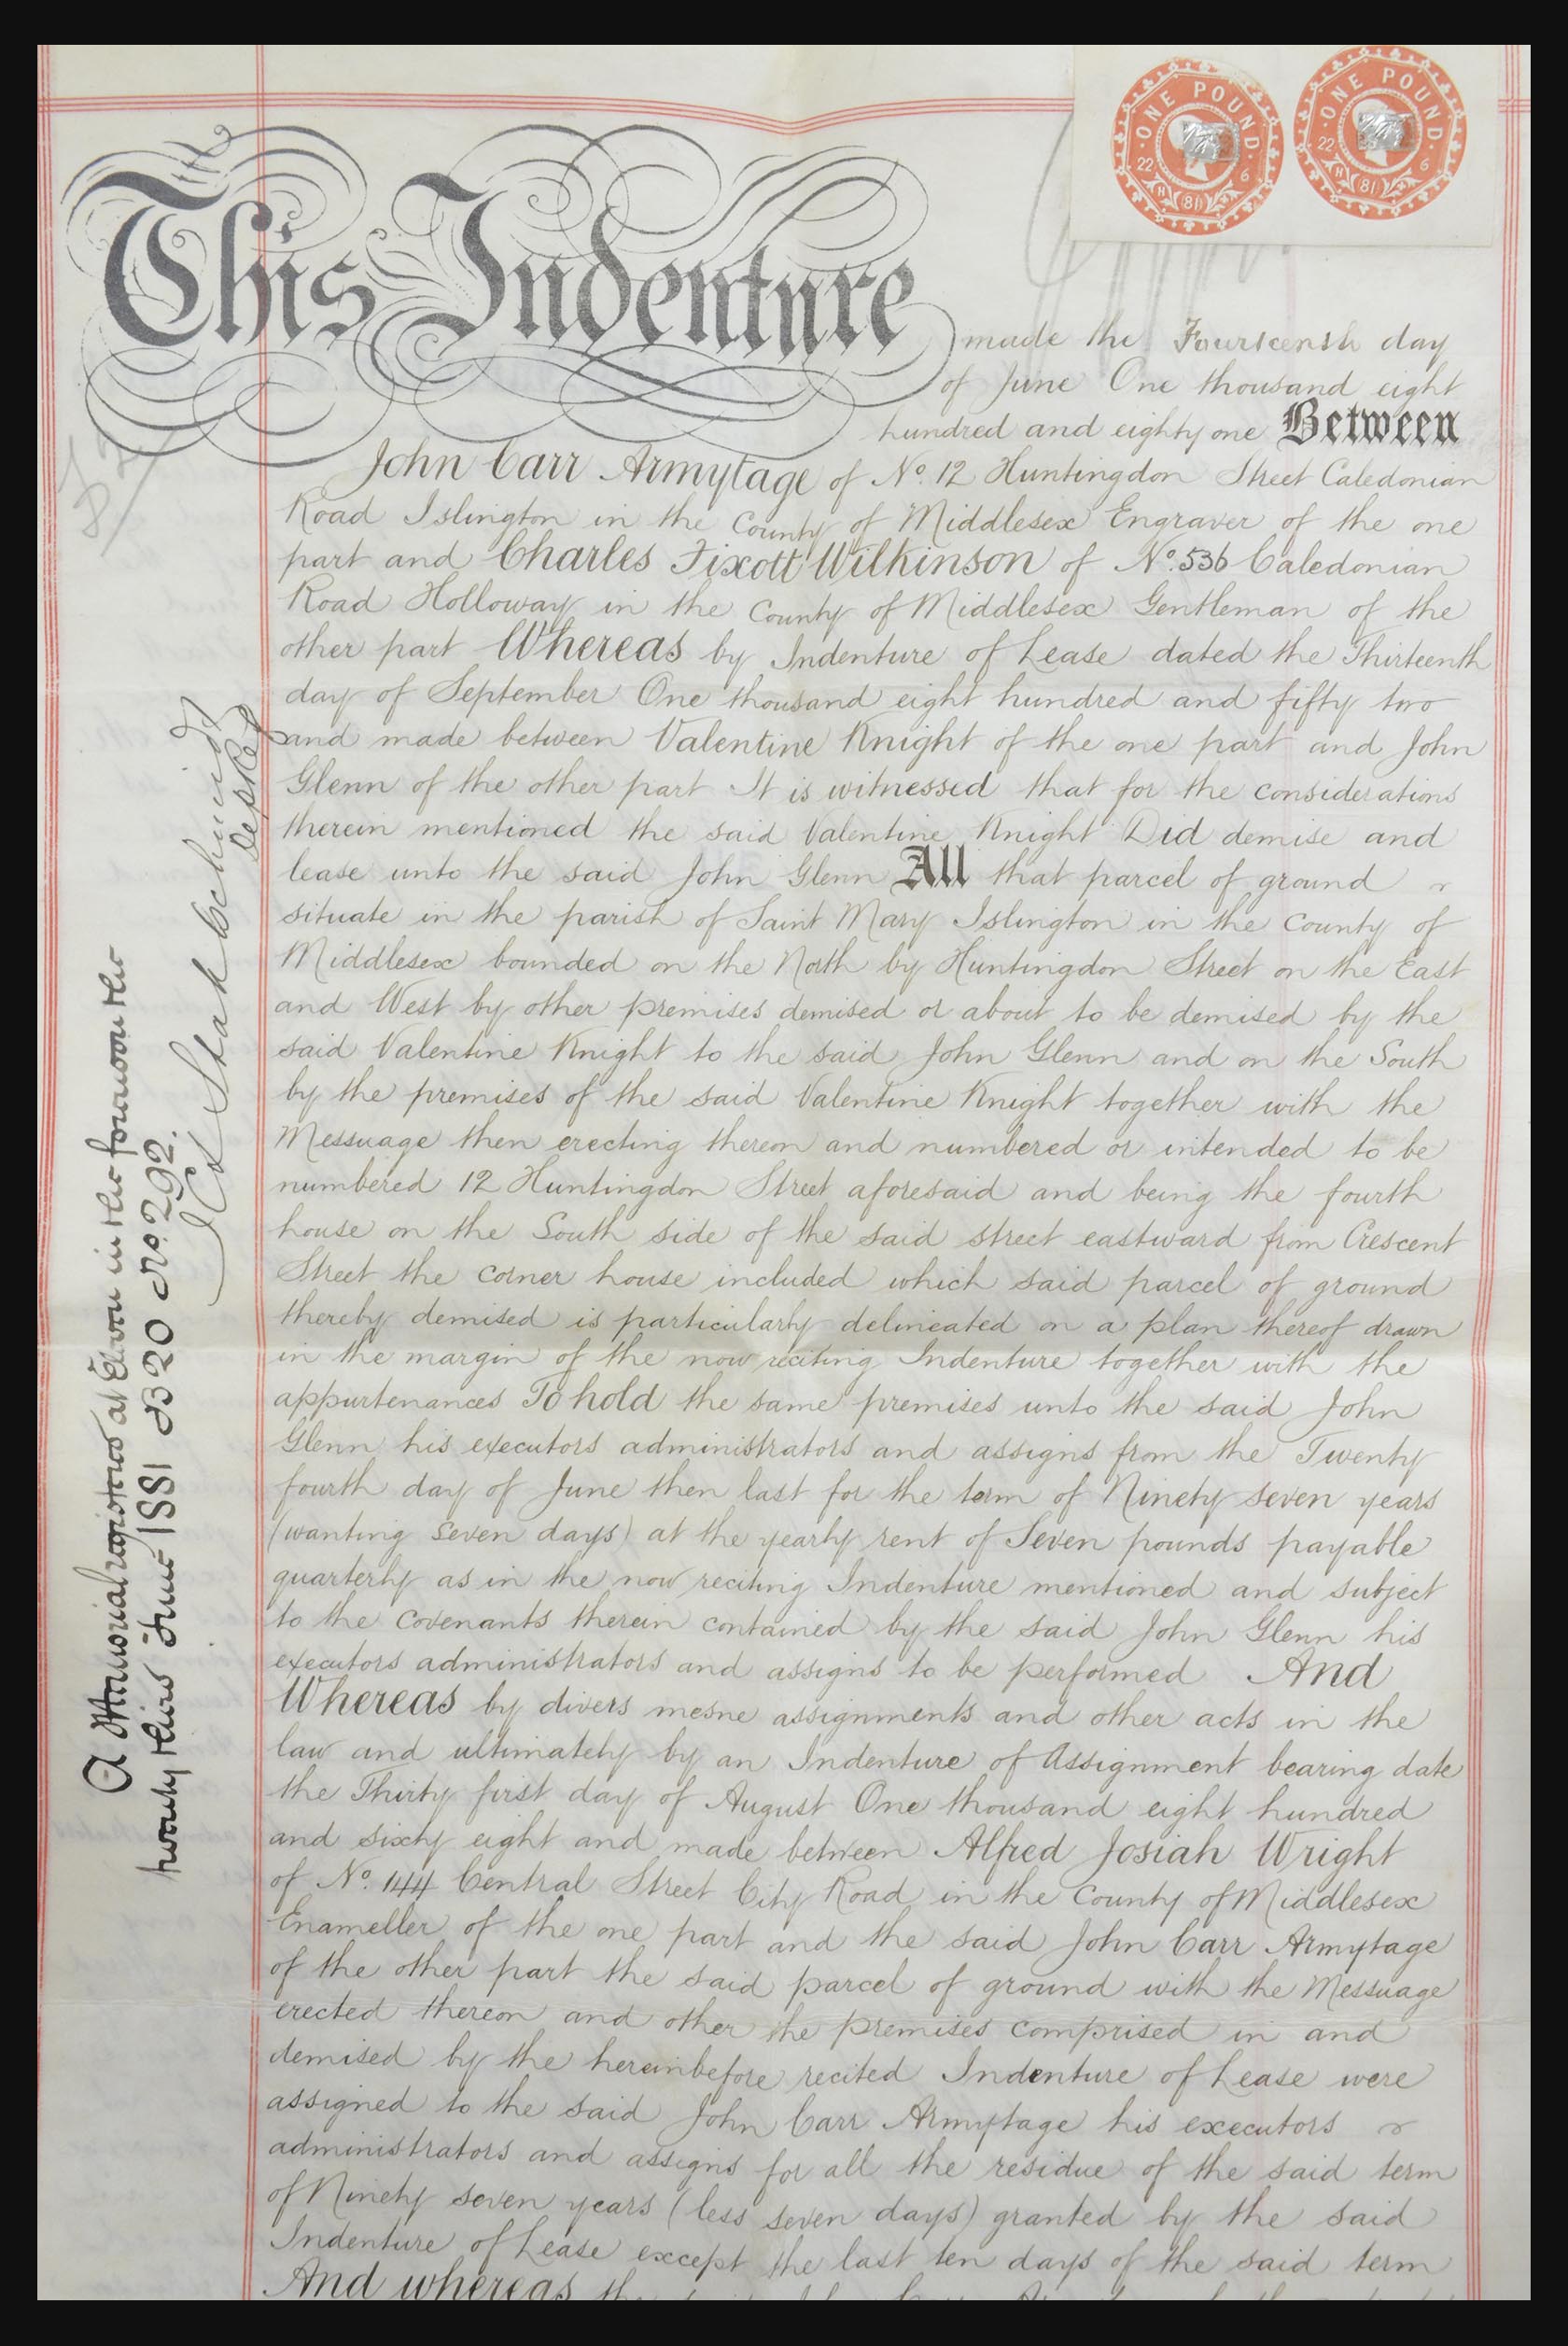 ONE POUND
22 6
H (81)
ONE POUND
22 6
H (81)
This Indenture made the Fourteenth day
of June One thousand eight
hundred and eighty one Between
John Carr Armytage of No. 12 Huntingdon Street Caledonian
Road Islington in the County of Middlesex Engraver of the one
part and Charles Fixott Wilkinson of No. 536 Caledonian
Road Holloway in the County of Middlesex Gentleman of the
other part Whereas by Indenture of Lease dated the Thirteenth
day of September One thousand eight hundred and fifty two
and made between Valentine Knight of the one part and John
Glenn of the other part It is witnessed that for the considerations
therein mentioned the said Valentine Knight Did demise and
lease unto the said John Glenn All that parcel of ground
situate in the parish of Saint Mary Islington in the County of
Middlesex bounded on the North by Huntingdon Street on the East
and West by other premises demised or about to be demised by the
said Valentine Knight to the said John Glenn and on the South
by the premises of the said Valentine Knight together with the
Messuage then erecting thereon and numbered or intended to be
numbered 12 Huntingdon Street aforesaid and being the fourth
house on the South side of the said street eastward from Crescent
Street the corner house included which said parcel of ground
thereby demised is particularly delineated on a plan thereof drawn
in the margin of the now reciting Indenture together with the
appurtenances To hold the same premises unto the said John
Glenn his executors administrators and assigns from the Twenty
fourth day of June then last for the term of Ninety seven years
(wanting seven days) at the yearly rent of Seven pounds payable
quarterly as in the now reciting Indenture mentioned and subject
to the covenants therein contained by the said John Glenn his
executors administrators and assigns to be performed And
Whereas by divers mesne assignments and other acts in the
law and ultimately by an Indenture of Assignment bearing date
the Thirty first day of August One thousand eight hundred
and sixty eight and made between Alfred Josiah Wright
of No. 144 Central Street City Road in the County of Middlesex
Enameller of the one part and the said John Carr Armytage
of the other part the said parcel of ground with the Messuage
erected thereon and other the premises comprised in and
demised by the hereinbefore recited Indenture of Lease were
assigned to the said John Carr Armytage his executors
administrators and assigns for all the residue of the said term
of Ninety seven years (less seven days) granted by the said
Indenture of Lease except the last ten days of the said term
And whereas the
A Memorial registered at Eleven in the forenoon the
twenty third June 1881 B 20 No. 292.